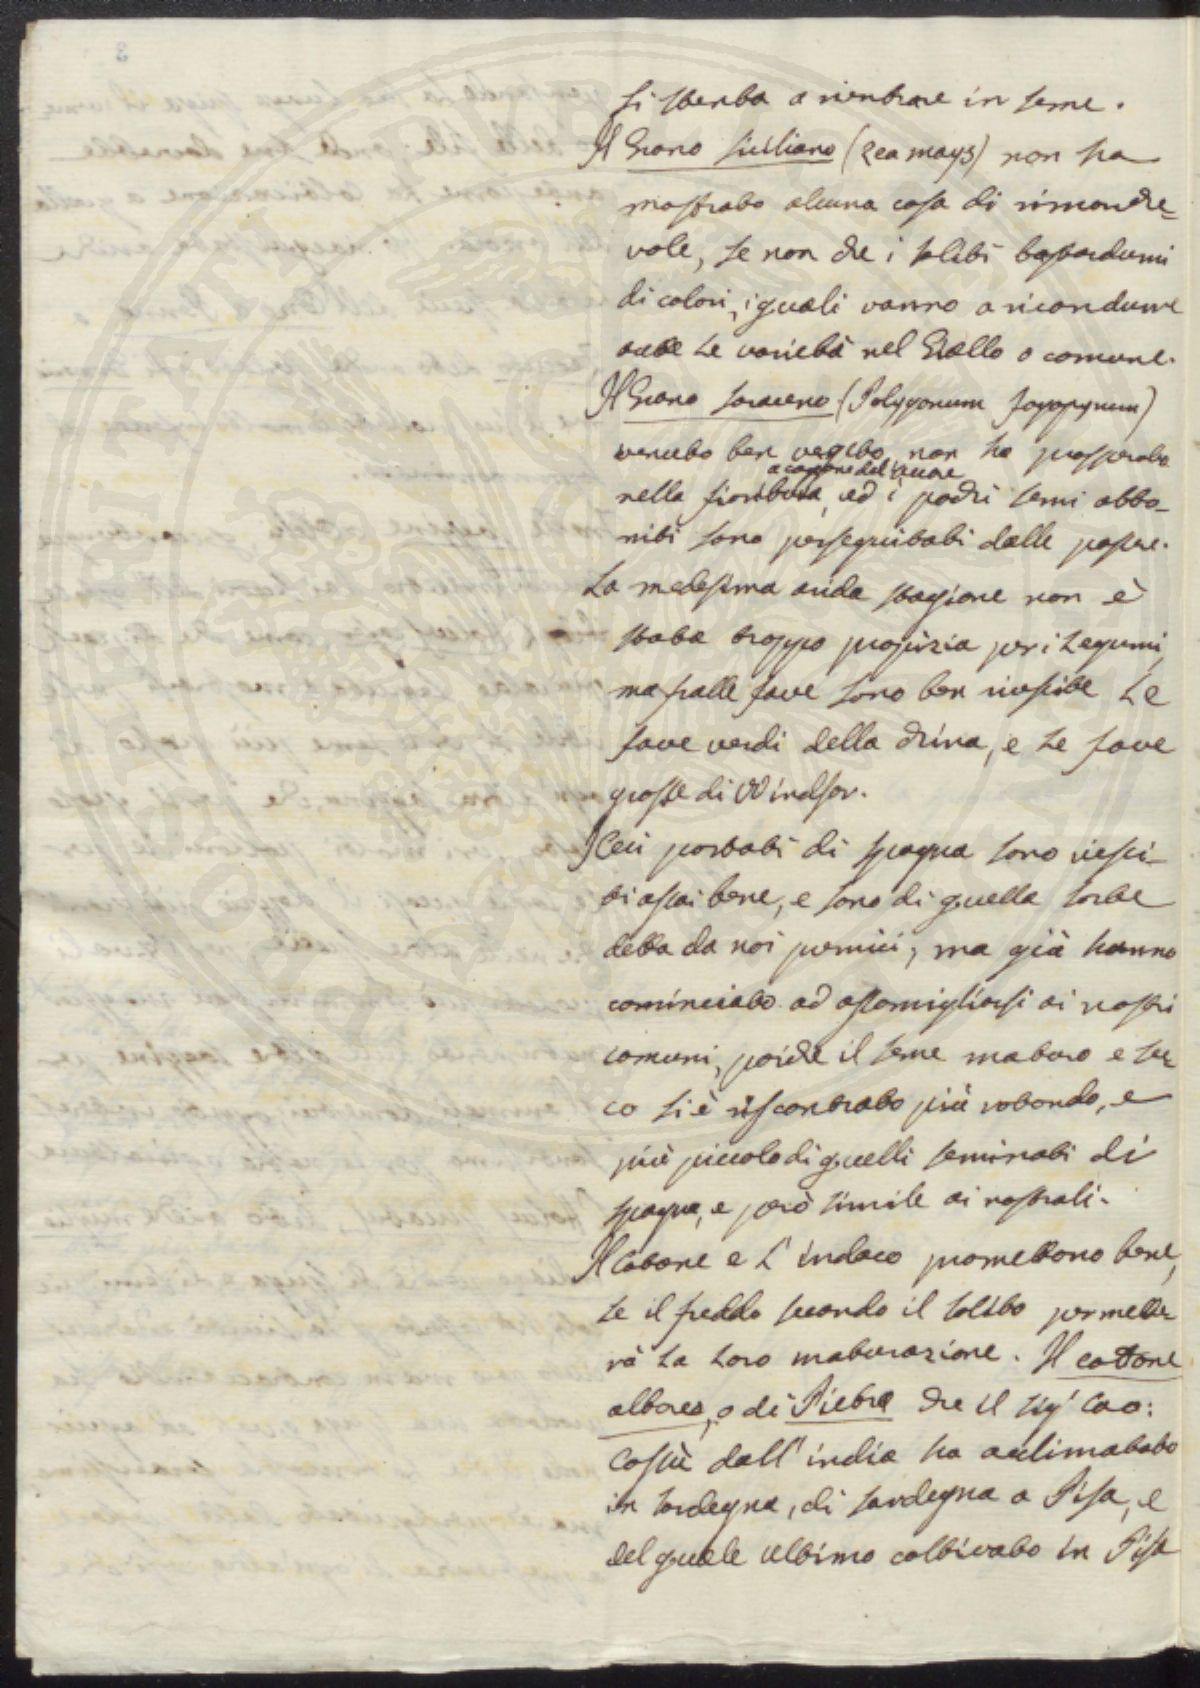 si stenta a rientrare in seme.
Il Grano siciliano (zea mays) non ha
mostrato alcuna cosa di rimarche=
vole, se non che i soliti bastardumi
di colori, i quali vanno a ricondurre
tutte le varietà nel Giallo o comune.
Il Grano saraceno (Polygonum fagopyrum)
venuto ben vegeto non ha prosperato
a cagione del secore
nella fioritura, ed i pochi semi abbo=
niti sono perseguitati dalle passere.
La medesima arida stagione non è
stata troppo propizia per i Legumi,
ma fralle fave sono ben riescite le
fave verdi della China, e le fave
grosse di Windsor.
I Ceci portati di Spagna sono riesci=
ti assai bene, e sono di quella sorte
detta da noi pernici; ma già hanno
cominciato ad assomigliarsi ai nostri
comuni, poiché il seme maturo e sec=
co si è riscontrato più rotondo, e
più piccolo di quelli seminati di
Spagna, e però simile ai nostrali.
Il Cotone e l'indaco promettono bene,
se il freddo secondo il solito permette=
rà la loro maturazione. Il cotone
arboreo, o di Pietra che il Sig.r Cav:
Cossù dall'india ha acclimatato
in Sardegna, di Sardegna a Pisa, e
del quale ultimo coltivato in Pisa